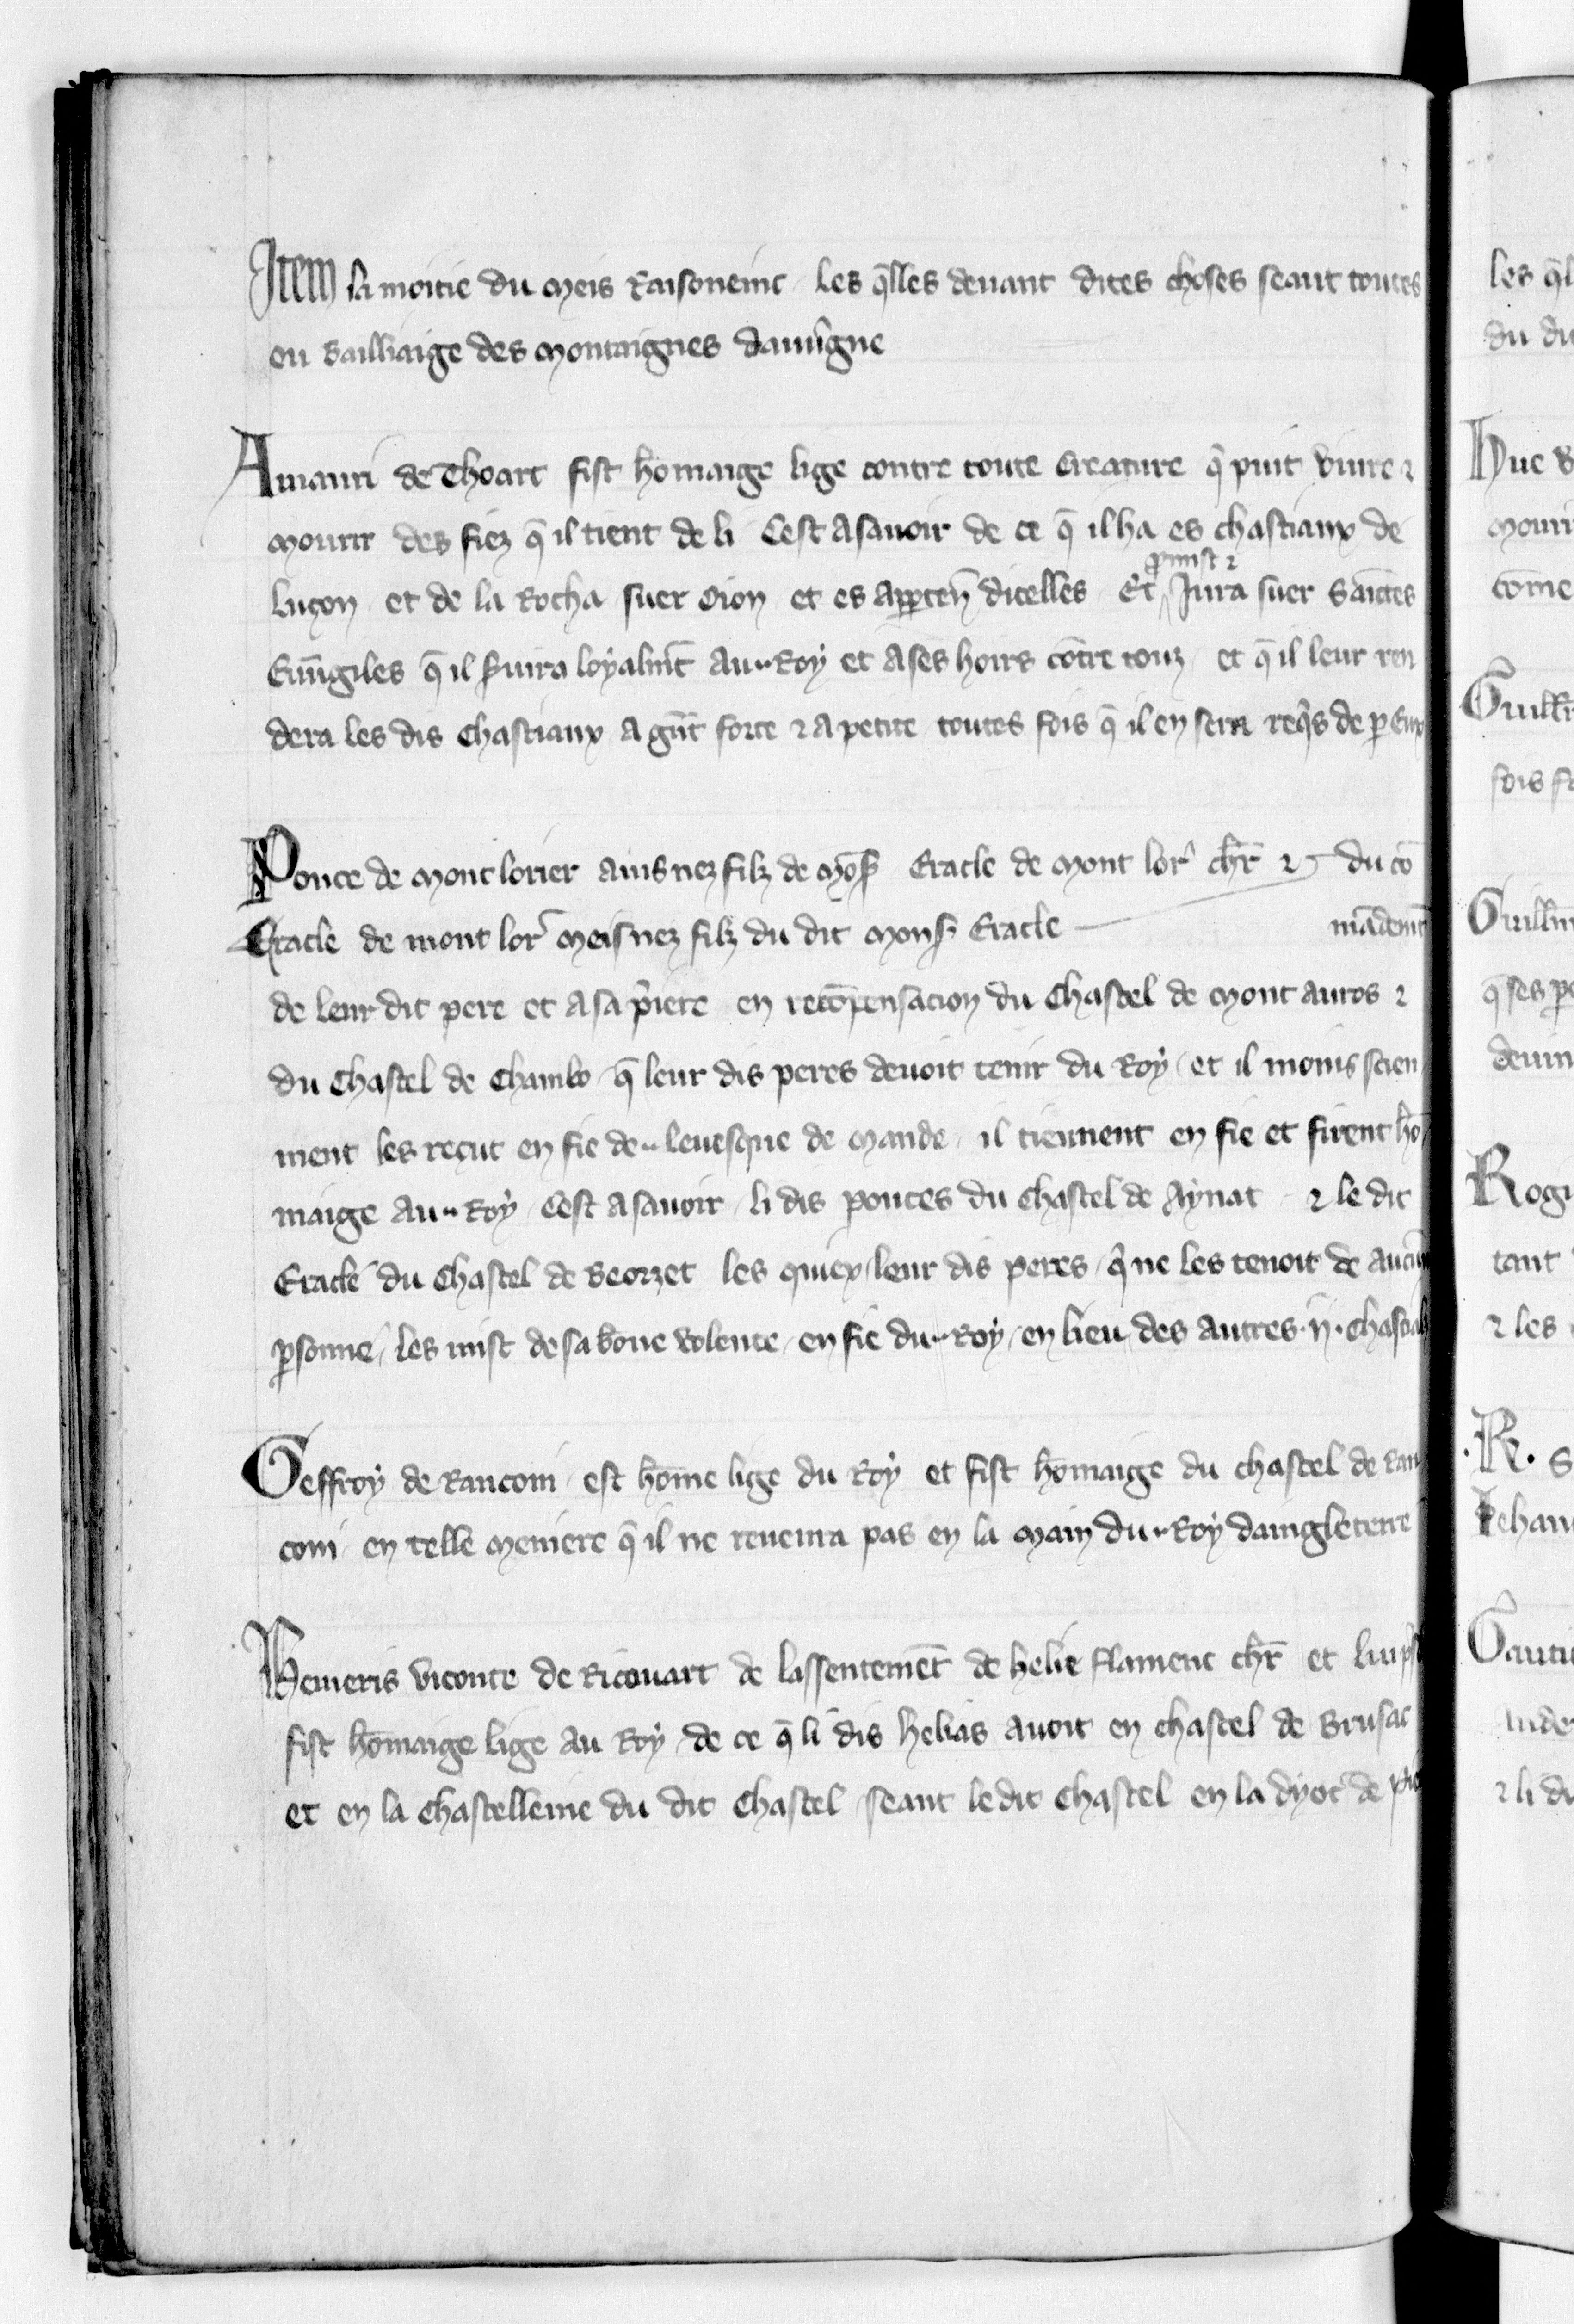 Item la moitie du meis Raisoneinc les q̄lles deuant dites choses seant toutes
ou bailliaige des montaignes dauuĩgne
Amauri de Thoart fist hōmaige lige contre toute Creature q̃ puit viure ⁊
mourir des fiez q̄ il tient de li Cest Asauoir de ce q̄ il ha es chastiaux de
Luçon et de la Rocha suer Oion et es Apꝑten̄ dicelles Et ꝓmist ⁊ Jura suer sainctes
Euu̅giles q̄ il s̃uira loyalm̄t Au ·· Roy et Ases hoirs cōtre touz et q̄ il leur ren
dera les dis Chastiaux A gn̄t force ⁊ A petite toutes fois q̄ il en sera req̃s de ꝑ Eux
Ponce de mont lorier ains nez filz de mōs̃ Eracle de mont lor̃ ch̄r ⁊ du cō
Eracle de mont lor̃ meisnez filz du dit mons̃ Eracle mādem̄t
de leur dit pere et Asa p̃iere en recōpensacion du Chastel de mont auros ⁊
du Chastel de Chambo q̄ leur dis peres deuoit tenir du Roy et il moins scien
ment les reçut en fie de ·· leuesque de mande il tiennent en fie et firent hō
maige Au ·· Roy Cest Asauoir li dis ponces du Chastel de Aynat ⁊ le dit
Eracle du Chastel de Beorzet les quiex leur dis peres q̃ ne les tenoit de Aucun̄
ꝑsonne les mist de sa bone volente en fie du ·· Roy en lieu des Autres ·ij· Chastiaux
Geffroy de Rancom est hōme lige du Roy et fist hōmaige du chastel de Ran
com en telle meniere q̄ il ne reuenra pas en la main du ·· Roy daingleterre
Hemeris viconte de Ricouart de lassentemēt de helie flamenc ch̄r et
fist hōmaige lige Au Roy de ce q̄ li dis helias Auoit en chastel de Brusac
et en la Chastelleine du dit Chastel seant ledit Chastel en la dyoc̃ de
les q̄l
du di
Hue
mouri
cōme
Guill
fois
Guillm
q̄ ses pe
deuin
Rogi
tant
⁊ les
·R·
Jehan
Gauti
⁊ li di